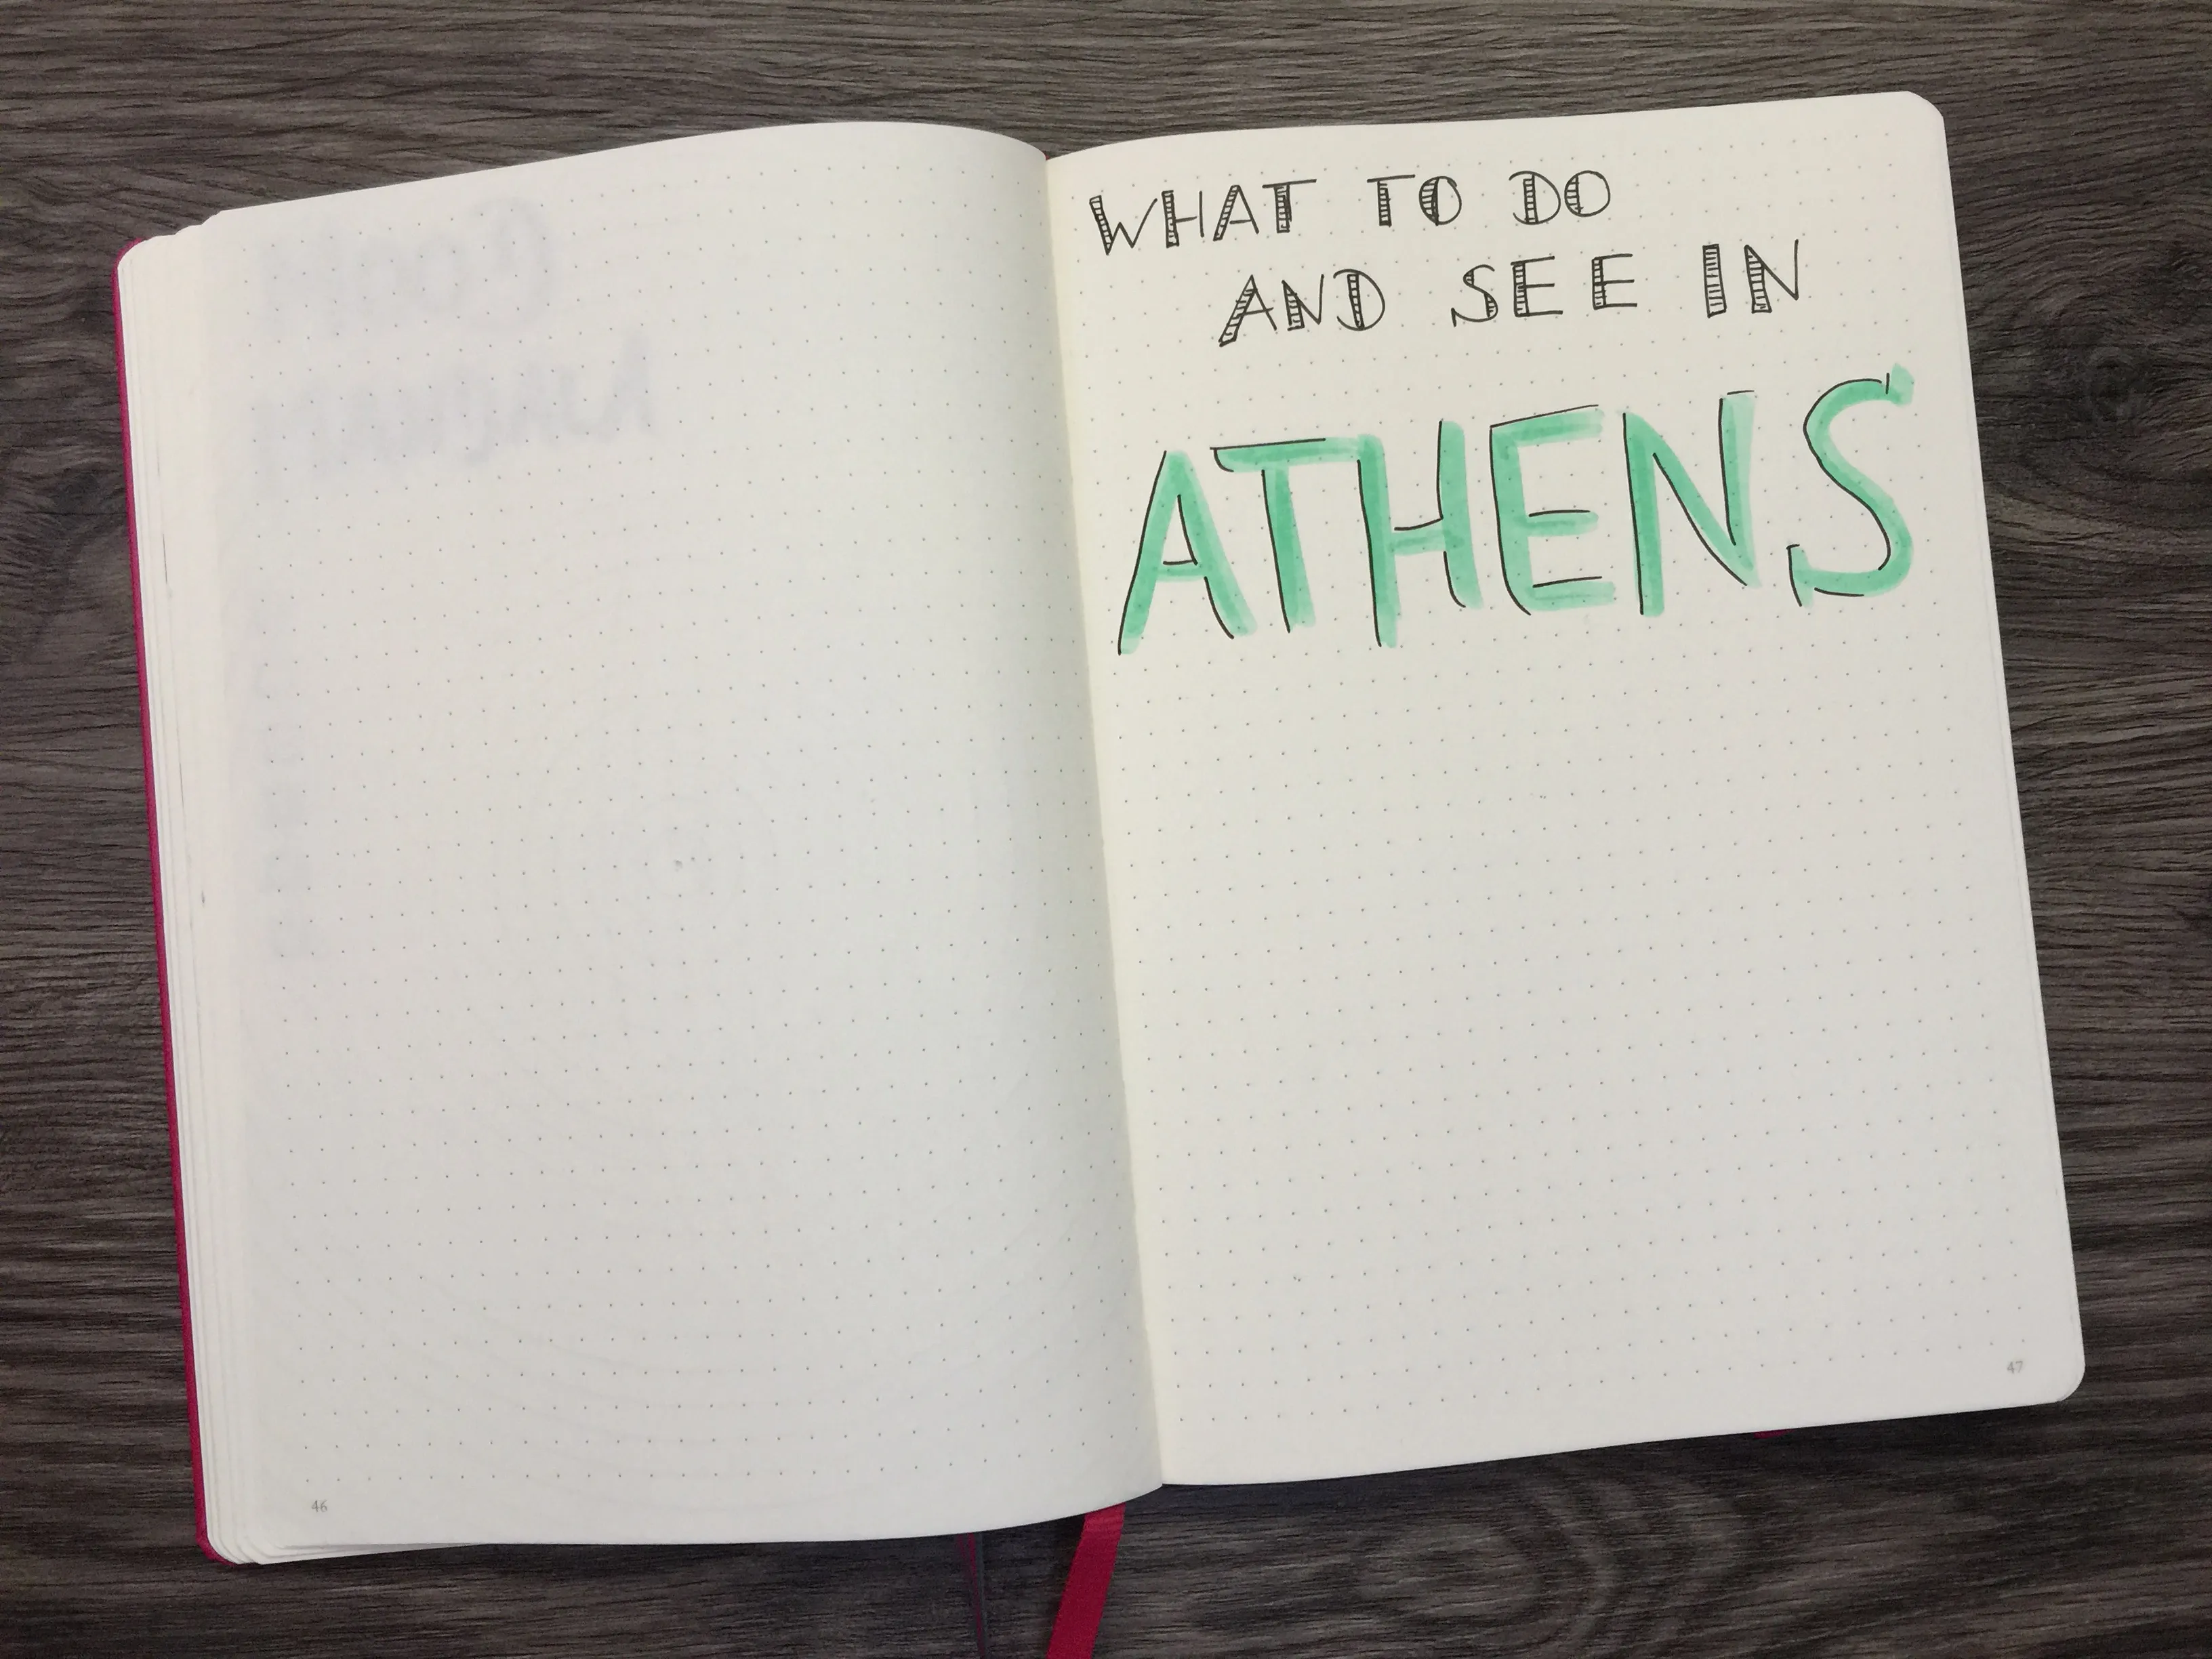 WHAT TO DO
AND SEE IN
ATHENS
46
47